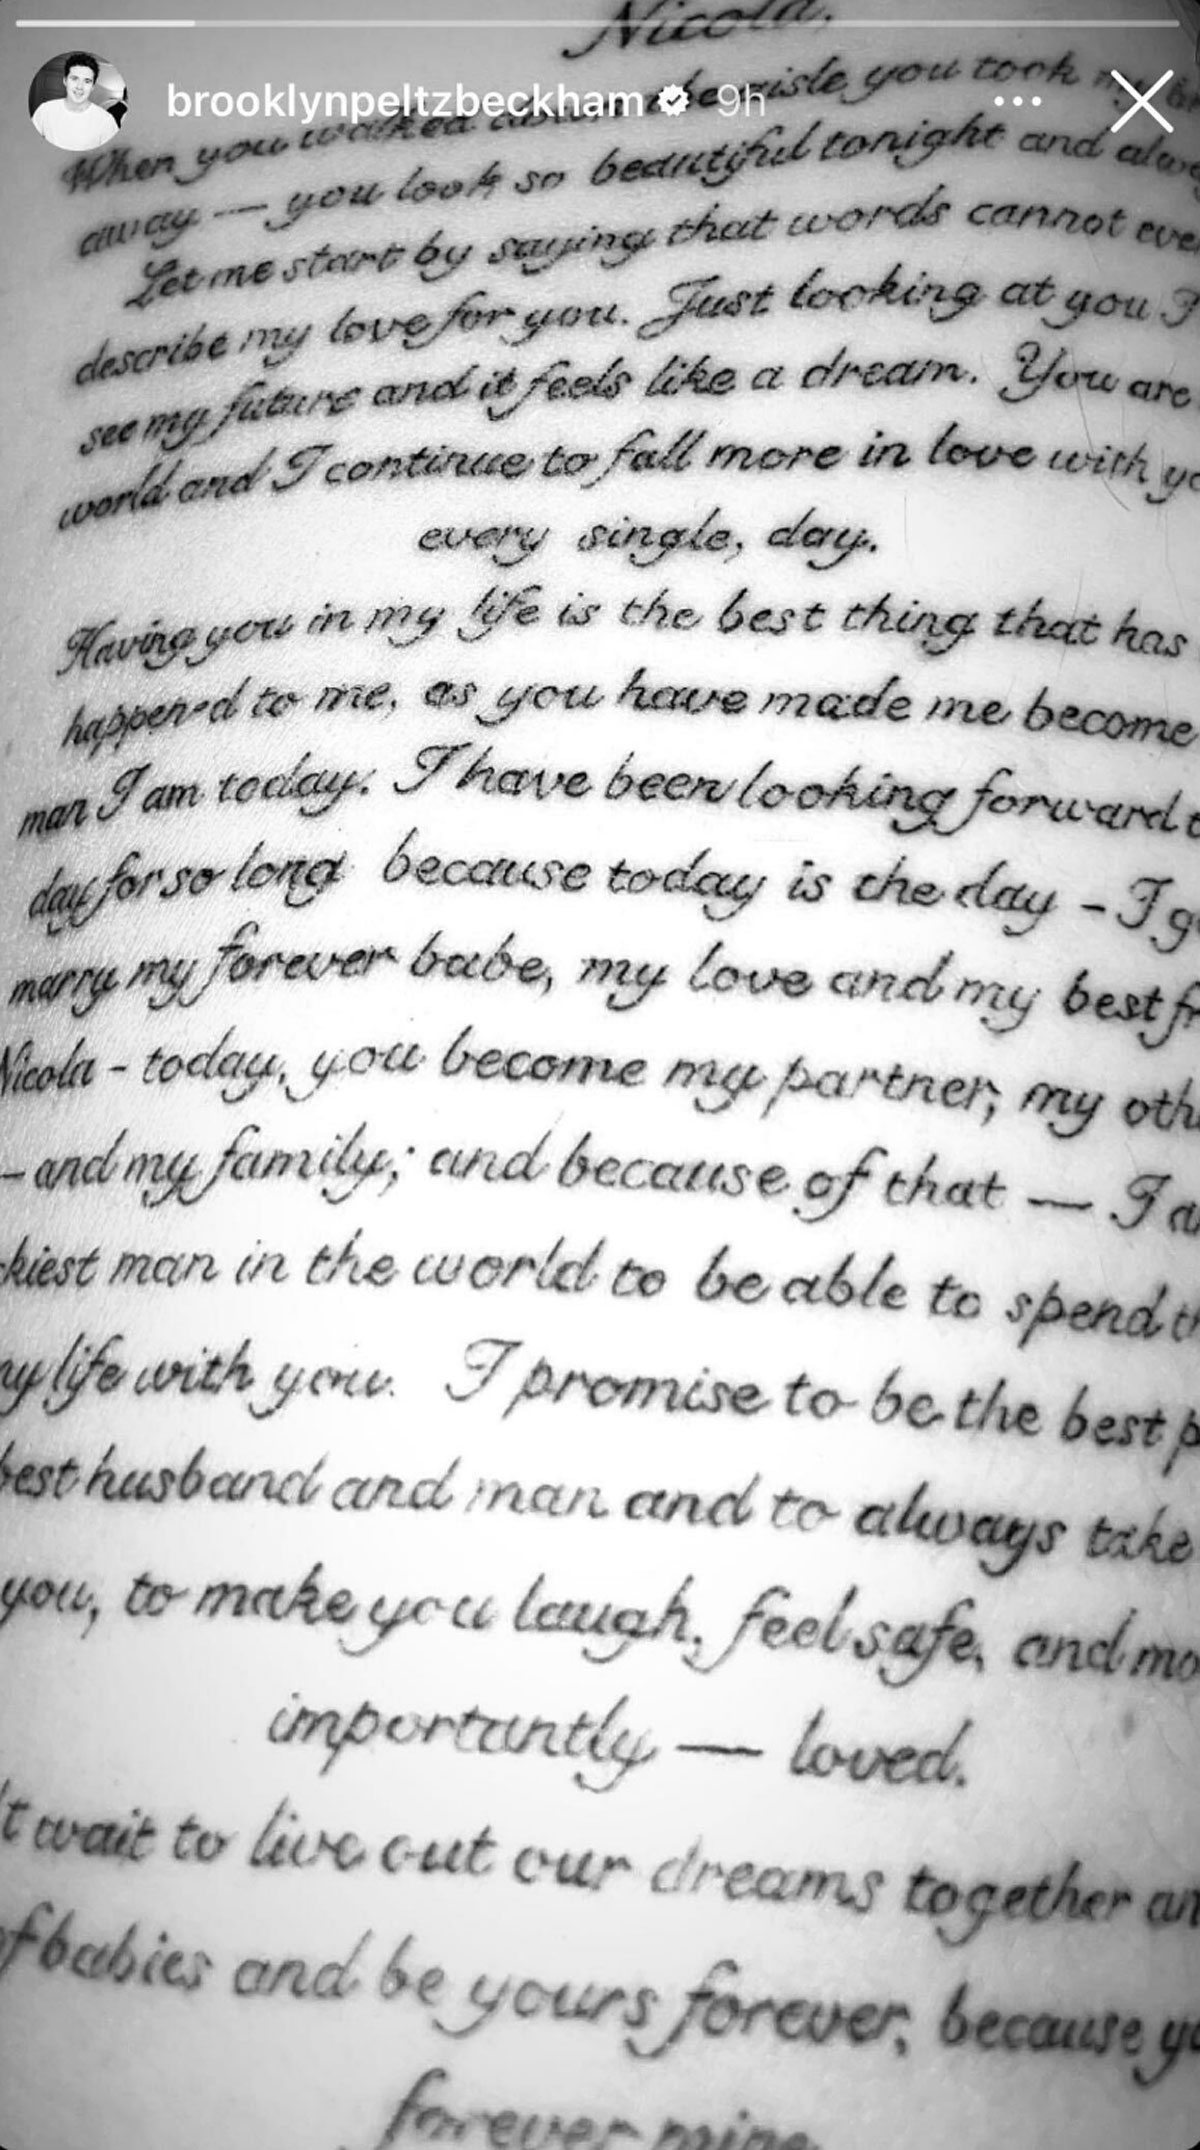 Nicola,
brooklynpeltzbeckham 9h
When you walked down the aisle you took my
away — you look so beautiful tonight and
Let me start by saying that words cannot
describe my love for you. Just looking at you I
see my future and it feels like a dream. You are
world and I continue to fall more in love with
every single, day.
Having you in my life is the best thing that has
happened to me, as you have made me become
man I am today. I have been looking forward
day for so long because today is the day - I
marry my forever babe, my love and my best
Nicola - today, you become my partner, my
- and my family; and because of that — I
kiest man in the world to be able to spend
life with you. I promise to be the best
best husband and man and to always take
you, to make you laugh, feel safe, and
importantly — loved.
't wait to live out our dreams together
of babies and be yours forever, because
forever mine